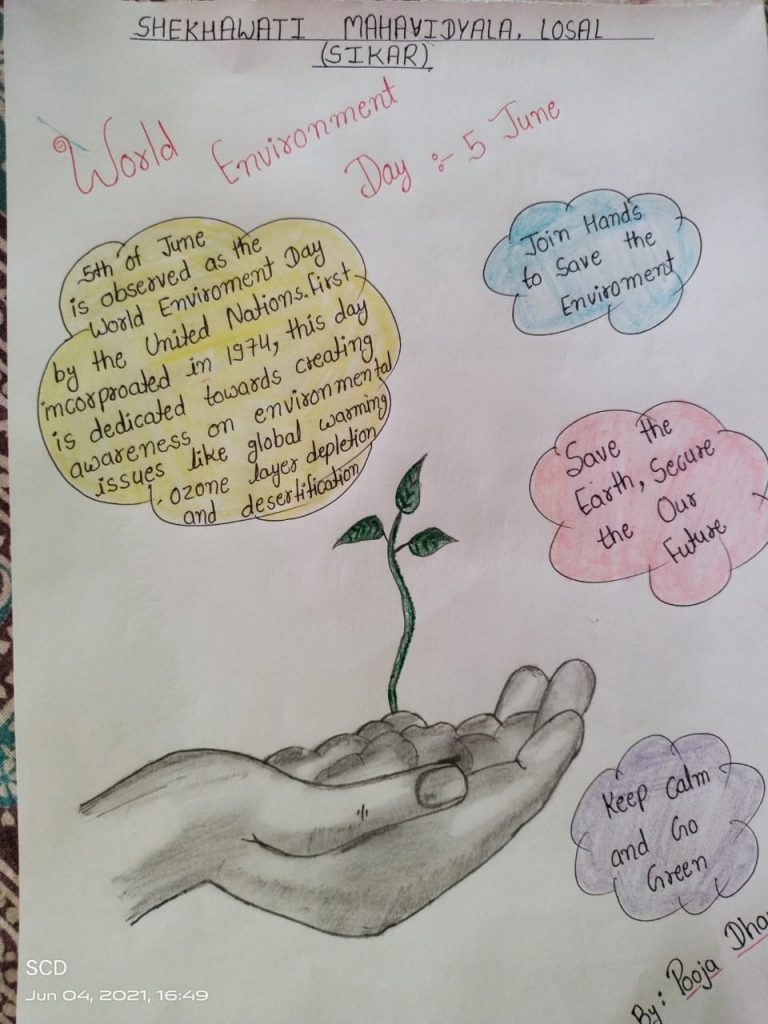 SHEKHAWATI MAHAVIDYALA, LOSAL
(SIKAR)
World Environment
Day :- 5 June
5th of June
is observed as the
World Enviroment Day
by the United Nations. First
incorproated in 1974, this day
is dedicated towards creating
awareness on environmental
issues like global warming
, ozone layer depletion
and desertification
Join Hands
to Save the
Enviroment
Save the
Earth, Secure
the Our
Future
Keep Calm
and Go
Green
By: Pooja
SCD
Jun 04, 2021, 16:49